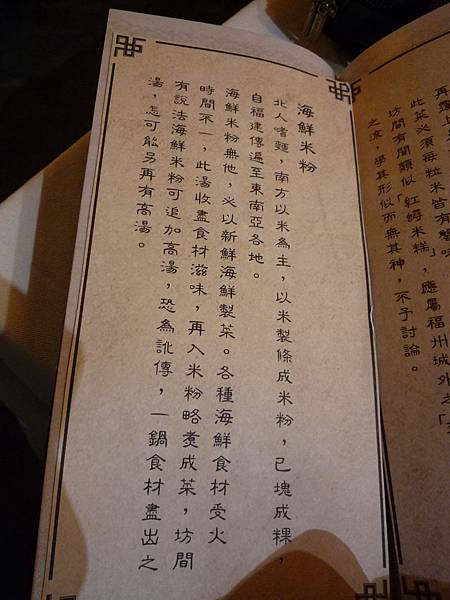 再覆上
此菜必須每粒米皆有蟹
坊間有間類似「紅蟳米糕」,應屬福州城外之「
之流,學其形似而無其神,不予討論。
海鮮米粉
北人嗜麵,南方以米為主,以米製條成米粉,已塊成粿,
自福建傳遍至東南亞各地。
海鮮米粉無他,必以新鮮海鮮製菜。各種海鮮食材受火
時間不一,此湯收盡食材滋味,再入米粉略煮成菜,坊間
有說法海鮮米粉可追加高湯,恐為訛傳,一鍋食材盡出之
湯,怎可能另再有高湯。